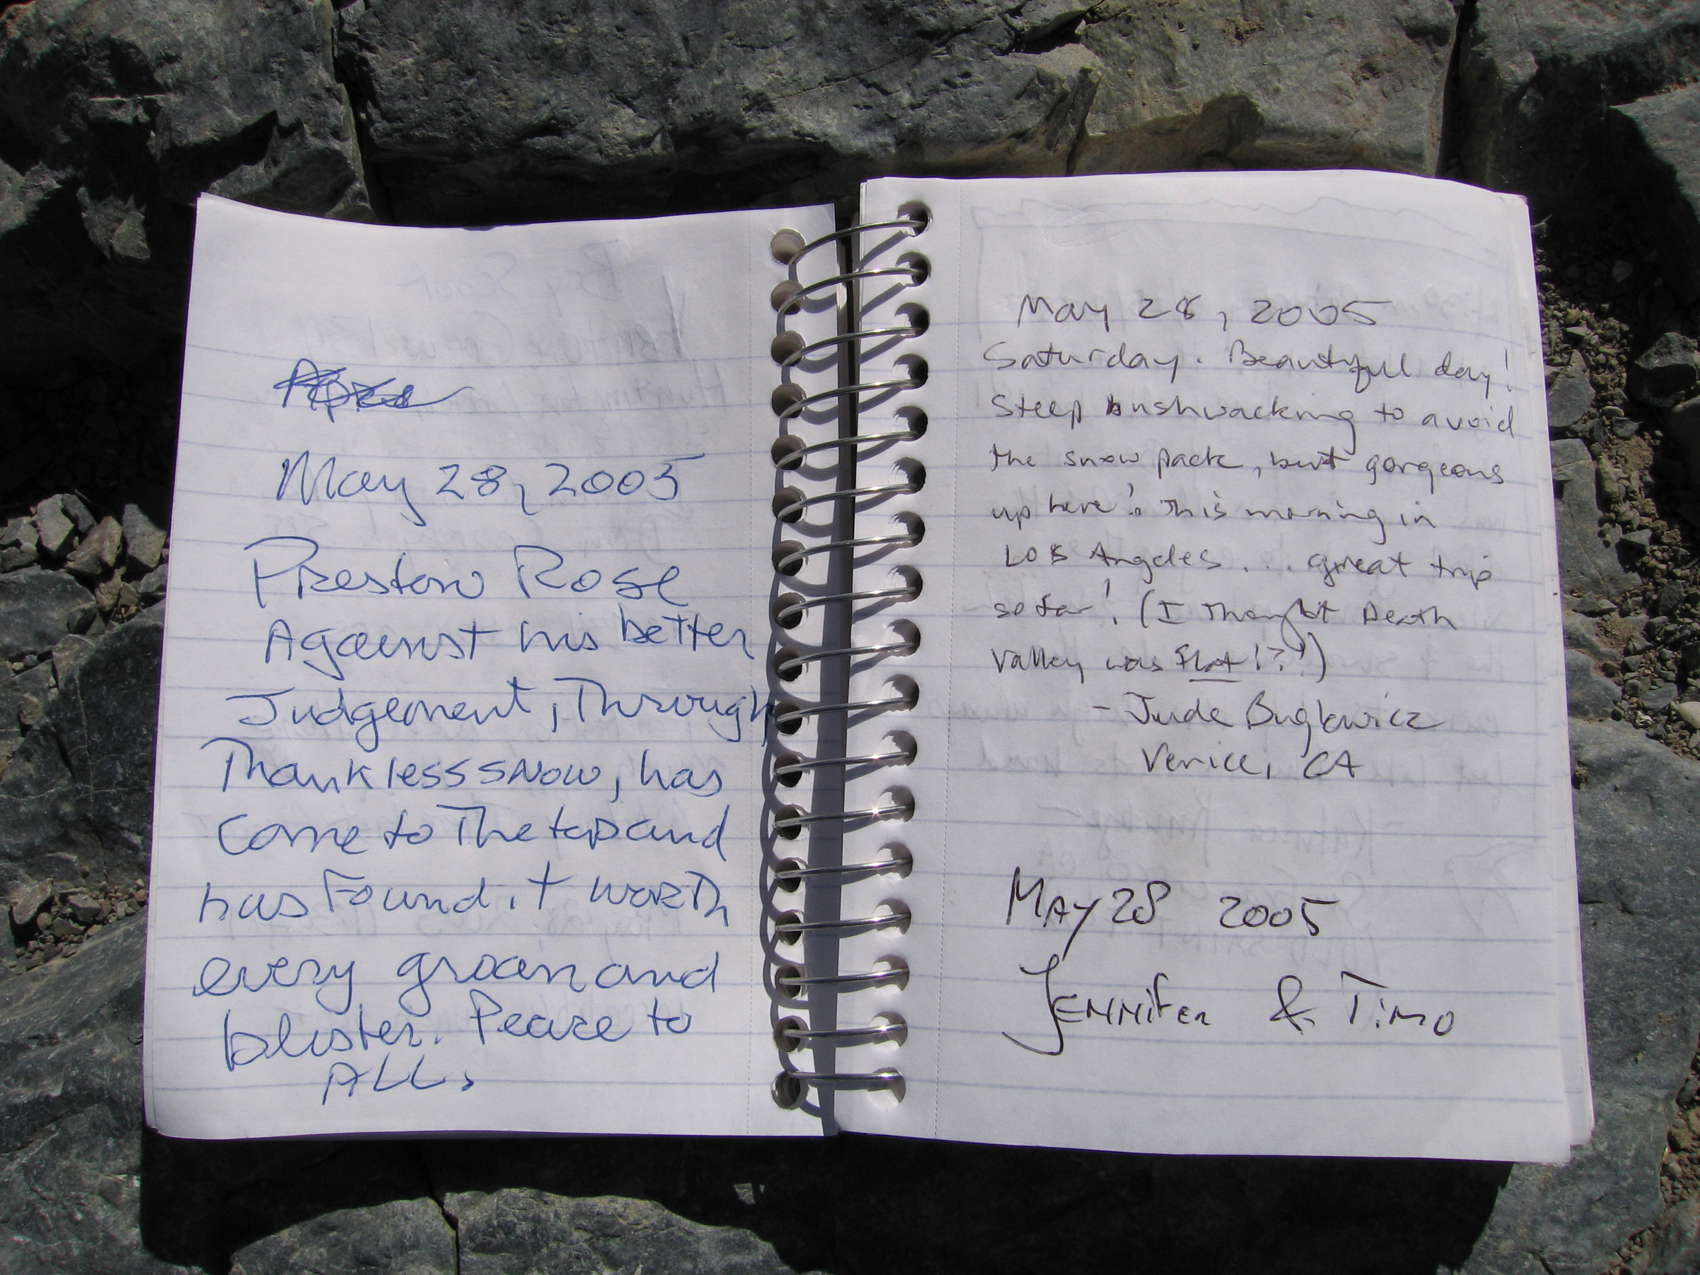 May 28, 2005
Preston Rose
Against his better
Judgement, Through
Thankless snow, has
Come to The top and
has Found it worth
every groan and
blister. Peace to
ALL.
May 28, 2005
Saturday. Beautiful day!
Steep bushwacking to avoid
the snow pack, but gorgeous
up here! This morning in
Los Angeles... great trip
so far! (I thought Death
Valley was flat!?!)
- Jude
Venice, CA
MAY 28 2005
JENNifer & Timo